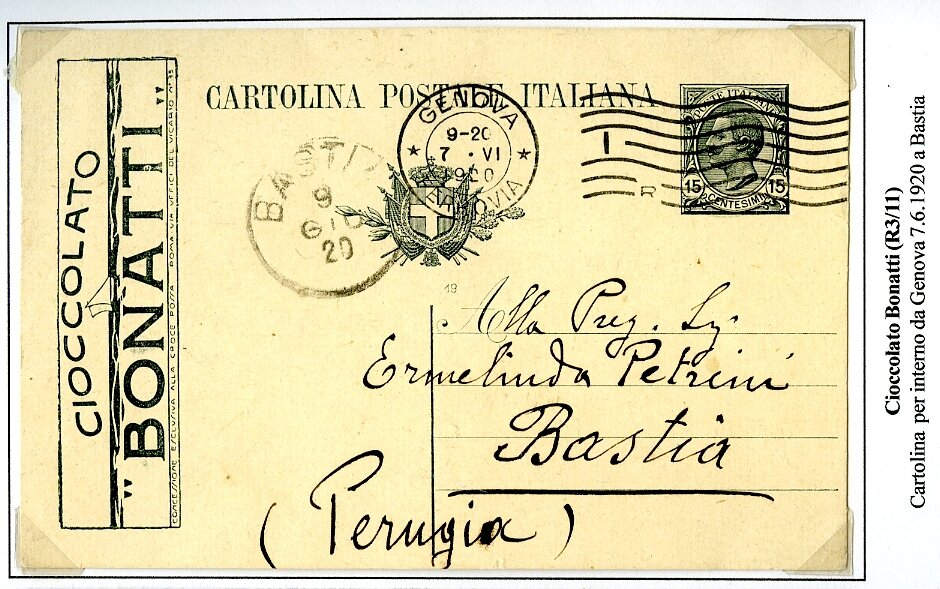 CIOCCOLATO
"BONATTI"
CONCESSIONE ESCLUSIVA ALLA CROCE ROSSA. ROMA VIA UFFICI DEL VICARIO Nº 35
CARTOLINA POSTALE ITALIANA
GENOVA
9-20
7 · VI
1920
FERROVIA
1
R
POSTE ITALIANE
15 15
CENTESIMI
BASTIA
9
GIU
20
19
Alla Preg. Sig.
Ermelinda Petrini
Bastia
(Perugia)
Cioccolato Bonatti (R3/11)
Cartolina per interno da Genova 7.6.1920 a Bastia